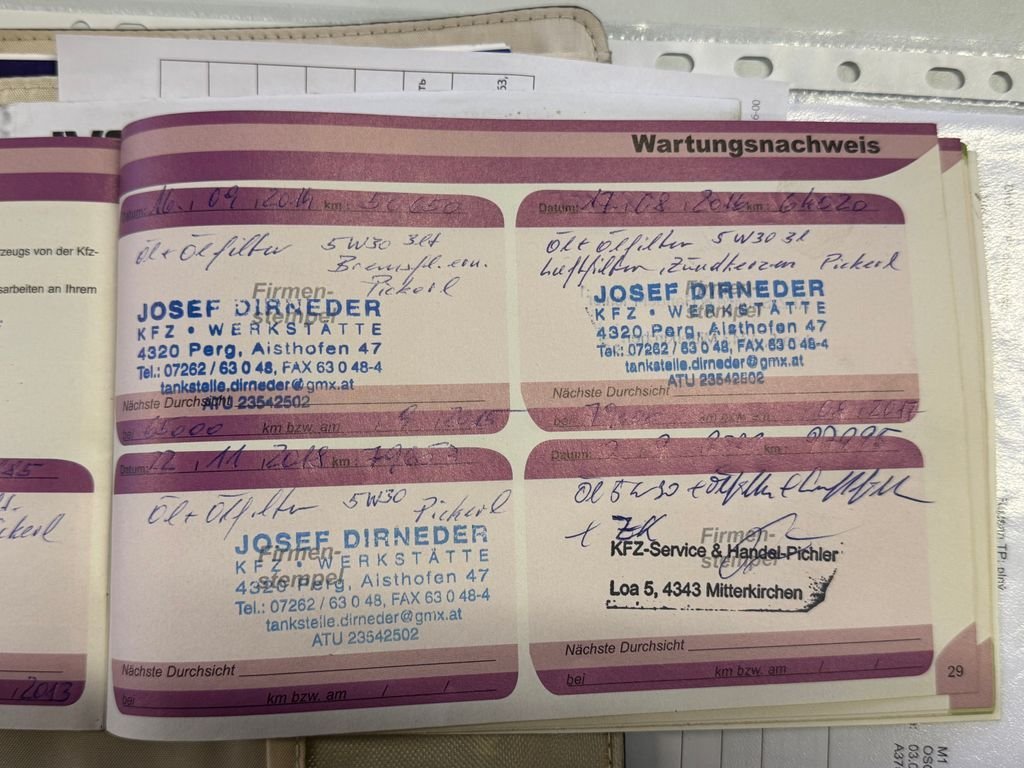 Wartungsnachweis
Datum: 16. 09. 2014 km:
Öl + Ölfilter 5W30 3lt
Bremsfl. ern.
Pickerl
Firmen-
stempel
JOSEF DIRNEDER
KFZ • WERKSTÄTTE
4320 Perg, Aisthofen 47
Tel.: 07262 / 63 0 48, FAX 63 0 48-4
tankstelle.dirneder@gmx.at
ATU 23542502
Nächste Durchsicht
bei 65000 km bzw. am / 9 / 2015
Datum: 17. 08. 2016 km: 64520
Öl + Ölfilter 5W30 3l
Luftfilter, Zündkerzen Pickerl
Firmen-
stempel
JOSEF DIRNEDER
KFZ • WERKSTÄTTE
4320 Perg, Aisthofen 47
Tel.: 07262 / 63 0 48, FAX 63 0 48-4
tankstelle.dirneder@gmx.at
ATU 23542502
Nächste Durchsicht
bei km bzw. am 08 / 2017
Datum: 22. 11. 2018 km:
Öl + Ölfilter 5W30 Pickerl
Firmen-
stempel
JOSEF DIRNEDER
KFZ • WERKSTÄTTE
4320 Perg, Aisthofen 47
Tel.: 07262 / 63 0 48, FAX 63 0 48-4
tankstelle.dirneder@gmx.at
ATU 23542502
Nächste Durchsicht
bei km bzw. am / /
Datum: km:
Öl 5W30 + Ölfilter + Luftfilter
+ ZK
Firmen-
stempel
KFZ-Service & Handel-Pichler
Loa 5, 4343 Mitterkirchen
Nächste Durchsicht
bei km bzw. am / /
29
rzeugs von der Kfz-
sarbeiten an Ihrem
85
ckerl
, 2013
M1